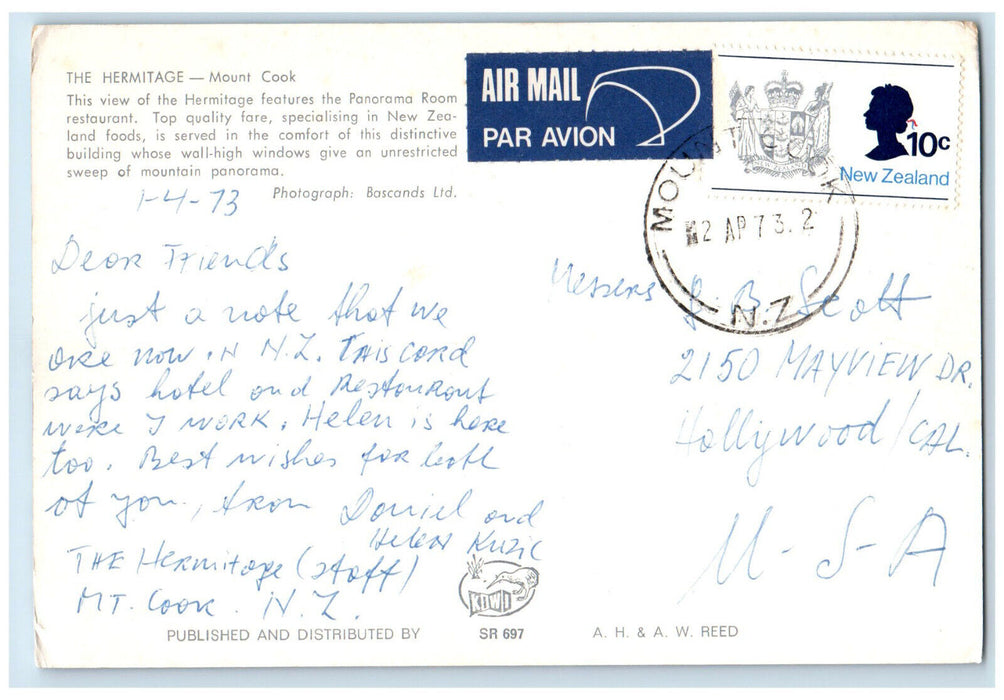 THE HERMITAGE — Mount Cook
This view of the Hermitage features the Panorama Room
restaurant. Top quality fare, specialising in New Zea-
land foods, is served in the comfort of this distinctive
building whose wall-high windows give an unrestricted
sweep of mountain panorama.
Photograph: Bascands Ltd.
1-4-73
Dear Friends
just a note that we
are now in N.Z. This card
says hotel and Restaurant
were I work. Helen is here
too. Best wishes for both
of you, from Daniel and
Helen Kuzic
THE Hermitage (staff)
MT. Cook. N.Z.
AIR MAIL
PAR AVION
10c
New Zealand
NEW ZEALAND
MOUNT COOK
2 AP 73.2
N.Z
Messers B. Scott
2150 MAYVIEW DR.
Hollywood / CAL.
U-S-A
KIWI
PUBLISHED AND DISTRIBUTED BY SR 697 A. H. & A. W. REED